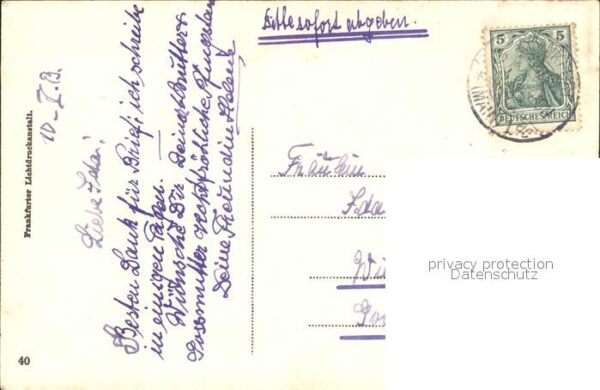 Bitte sofort abgeben.
5
DEUTSCHES REICH
(MAIN)
10. V. 13.
Liebe Ida!
Besten Dank für Brief, ich schreibe
in einigen Tagen.
Wünsche Dir Deiner Mutter &
Grossmutter recht fröhliche Pfingsten
Deine Freundin Helene
Fräulein
Ida
Frankfurter Lichtdruckanstalt.
40
privacy protection
Datenschutz